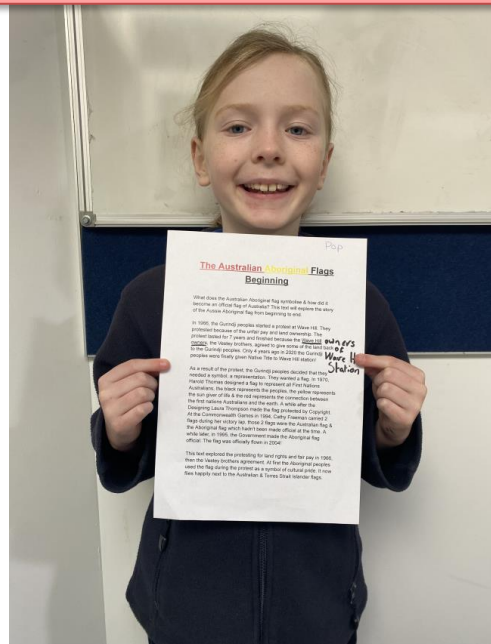 Pop
The Australian Aboriginal Flags
Beginning
What does the Australian Aboriginal flag symbolise & how did it
become an official flag of Australia? This text will explore the story
of the Aussie Aboriginal flag from beginning to end.
In 1966, the Gurindji peoples started a protest at Wave Hill. They
protested because of the unfair pay and land ownership. The
protest lasted for 7 years and finished because the Wave Hill
owners, the Vestey brothers, agreed to give some of the land back
to the Gurindji peoples. Only 4 years ago in 2020 the Gurindji
peoples were finally given Native Title to Wave Hill station!
owners
of
Wave H
Station
As a result of the protest, the Gurindji peoples decided that they
needed a symbol, a representation. They wanted a flag. In 1970,
Harold Thomas designed a flag to represent all First Nations
Australians, the black represents the peoples, the yellow represents
the sun giver of life & the red represents the connection between
the first nations Australians and the earth. A while after the
Designing Laura Thompson made the flag protected by Copyright.
At the Commonwealth Games in 1994, Cathy Freeman carried 2
flags during her victory lap, those 2 flags were the Australian flag &
the Aboriginal flag which hadn't been made official at the time. A
while later, in 1995, the Government made the Aboriginal flag
official. The flag was officially flown in 2004!
This text explored the protesting for land rights and fair pay in 1966,
then the Vestey brothers agreement. At first the Aboriginal peoples
used the flag during the protest as a symbol of cultural pride. It now
flies happily next to the Australian & Torres Strait Islander flags.